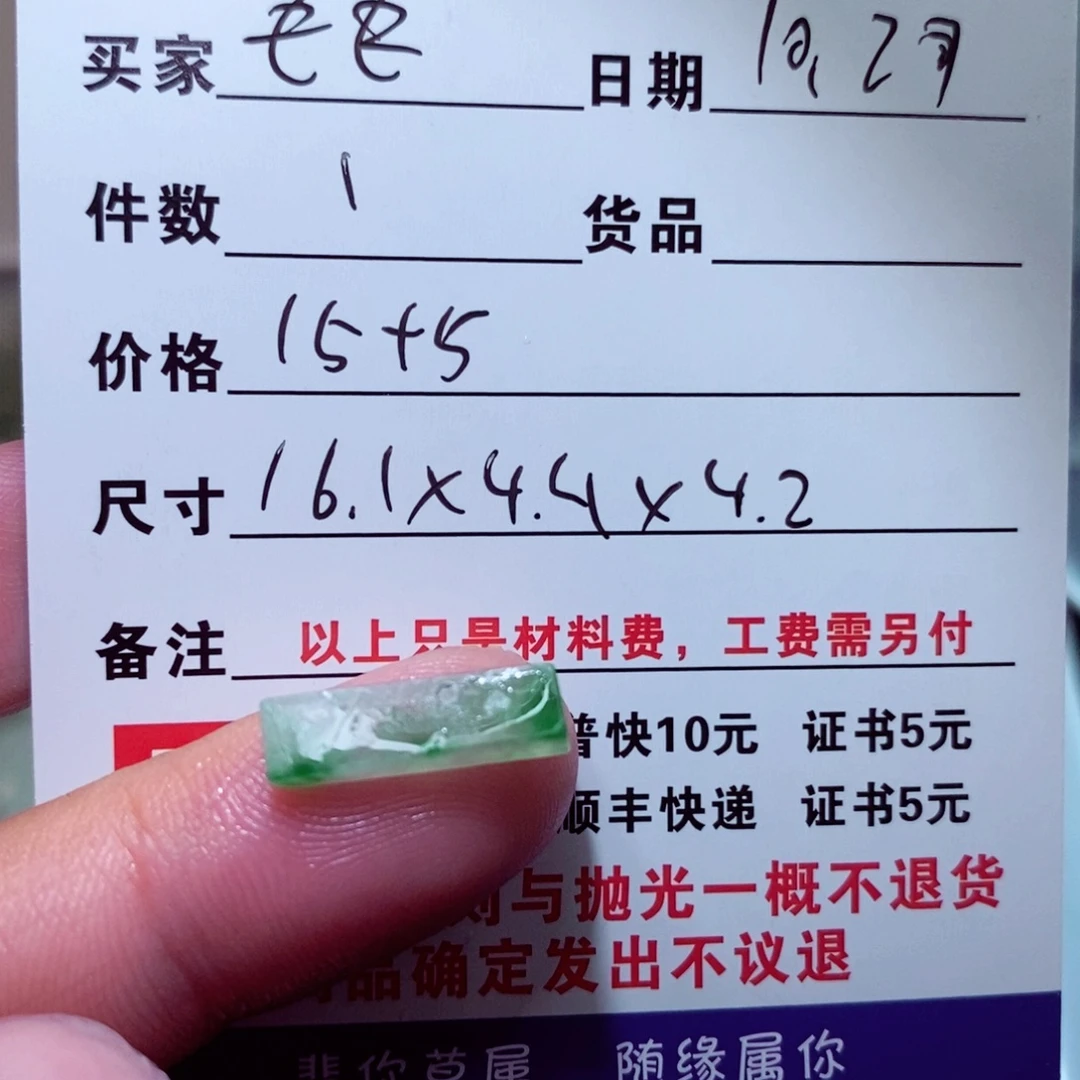 买家 日期
件数 1 货品
价格 15+5
尺寸 16.1×4.4×4.2
备注 以上只是材料费，工费需另付
普快10元 证书5元
顺丰快递 证书5元
与抛光一概不退货
品确定发出不议退
随缘属你